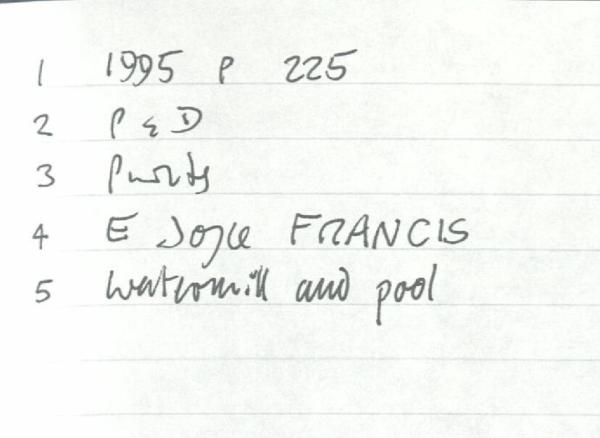 1 1995 P 225
2 P & D
3 Prints
4 E Joyce FRANCIS
5 Watermill and pool